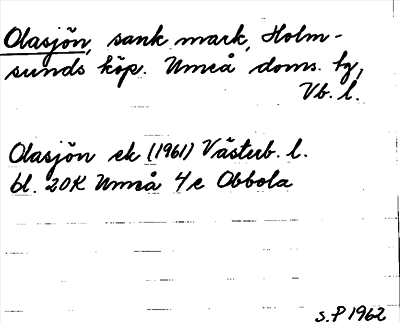 Olasjön, sank mark, Holm-
sunds köp. Umeå doms. lg,
Vb. l.
Olasjön ek (1961) Västerb. l.
bl. 20K Umeå 4c Obbola
S.P 1962